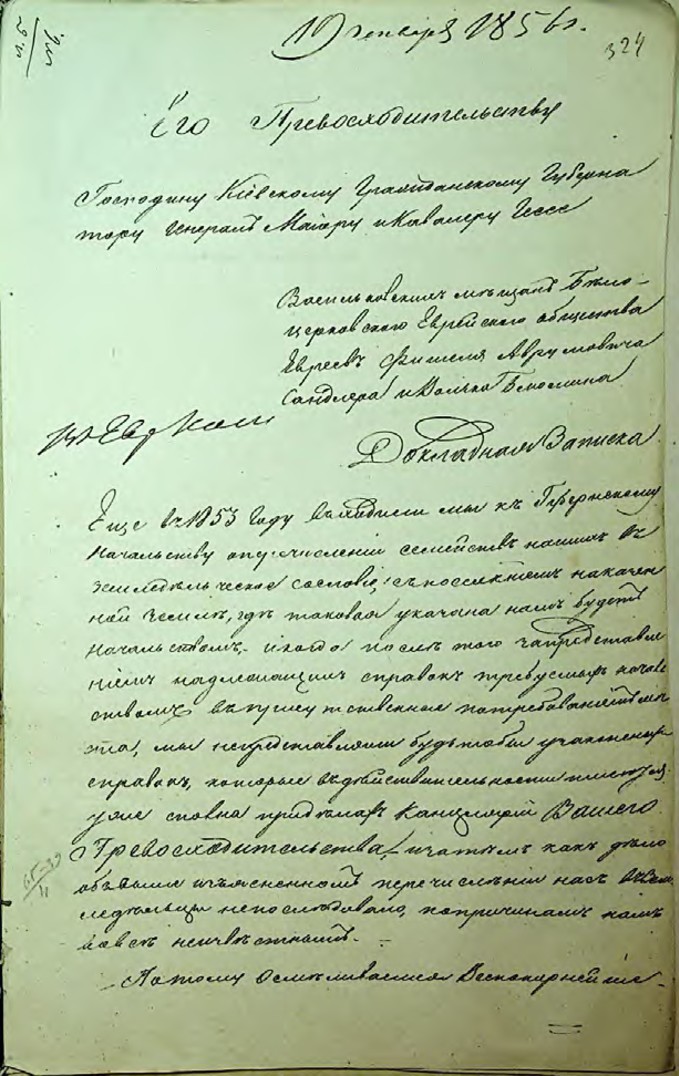 19 генваря 1856 г.
324
Его Превосходительству
Господину Кіевскому Гражданскому Губерна
тору Генералъ Маіору и Кавалеру Гессе
Васильковскихъ мѣщанъ Бѣло-
церковского Еврейского общества
Евреевъ Фишеля Аврумовича
Сандлера и Волька
Докладная Записка
Еще въ 1853 году входили мы къ Губернскому
Начальству о перечисленіи семействъ нашихъ въ
земледѣльческое сословіе, съ поселеніемъ на казен
ной землѣ, гдѣ таковая указана намъ будетъ
начальствомъ, и когда послѣ того за представле
ніемъ надлежащихъ справокъ требуемыхъ начал
ствомъ
мы не представляли будьтобы
справокъ, которые въ дѣйствительности
уже сполна при дѣлахъ Канцеляріи Вашего
Превосходительства, и затѣмъ какъ дѣло
объ выше изъясненномъ перечисленіи насъ въ Зем
ледѣльцы не послѣдовало, по причинамъ намъ
вовсе неизвѣстнымъ. -
Потому осмѣливаемся Всепокорнейше